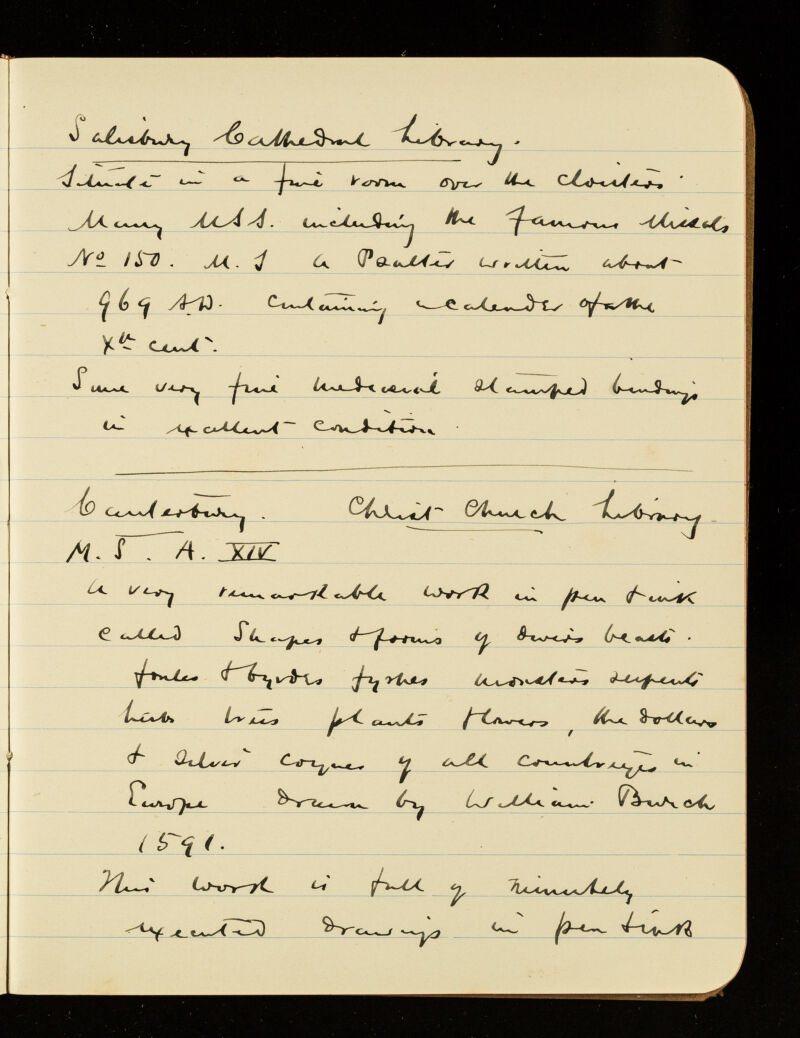 Salisbury Cathedral Library.
Situate in a fine room over the Cloisters.
Many MSS. including the famous Missals
No 150. M.S a Psalter written about
969 A.D. containing a calender of the
Xth cent.
Some very fine mediaeval stamped bindings
in excellent condition.
Canterbury. Christ Church Library
M.S. A. XIV
a very remarkable work in pen & ink
called Shapes & forms of divers beasts.
foules & byrdes fyshes monsters serpents
herbs trees plants flowers, the dollars
& silver coynes of all countreyes in
Europe drawn by William Burch
1591.
This work is full of minutely
executed drawings in pen & ink